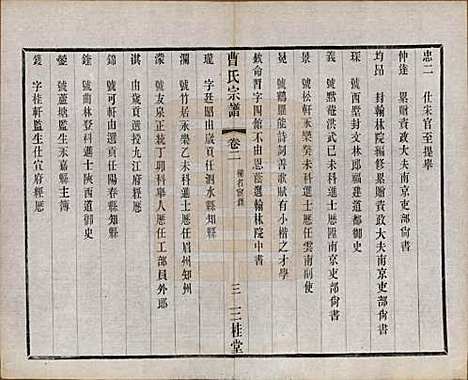 忠二 仕宋官至提舉
仲達 累贈資政大夫南京吏部尚書
均昂 封翰林院編修累贈資政大夫南京吏部尚書
琛 號西墅封文林郎福建道都御史
義 號默菴洪武己未科進士歷陞南京吏部尚書
景 號松軒永樂癸未科進士歷任雲南副使
冕 號鶴 能詩詞善歌賦有小楷之才學
欽命習字四館不由恩蔭選翰林院中書
曹氏宗譜 卷二 三 三桂堂
瓏 字廷 由歲貢歷任泗水縣知縣
瀾 號竹居永樂乙未科進士歷任眉州知州
濚 號友泉正統丁卯科舉人歷任工部員外郎
淇 由歲貢選授九江府經歷
錦 號可軒由選貢任陽春縣知縣
銓 號蘭林登科進士陝西道御史
鎣 號蘆塘監生永嘉縣主簿
錢 字桂軒監生仕宣府經歷